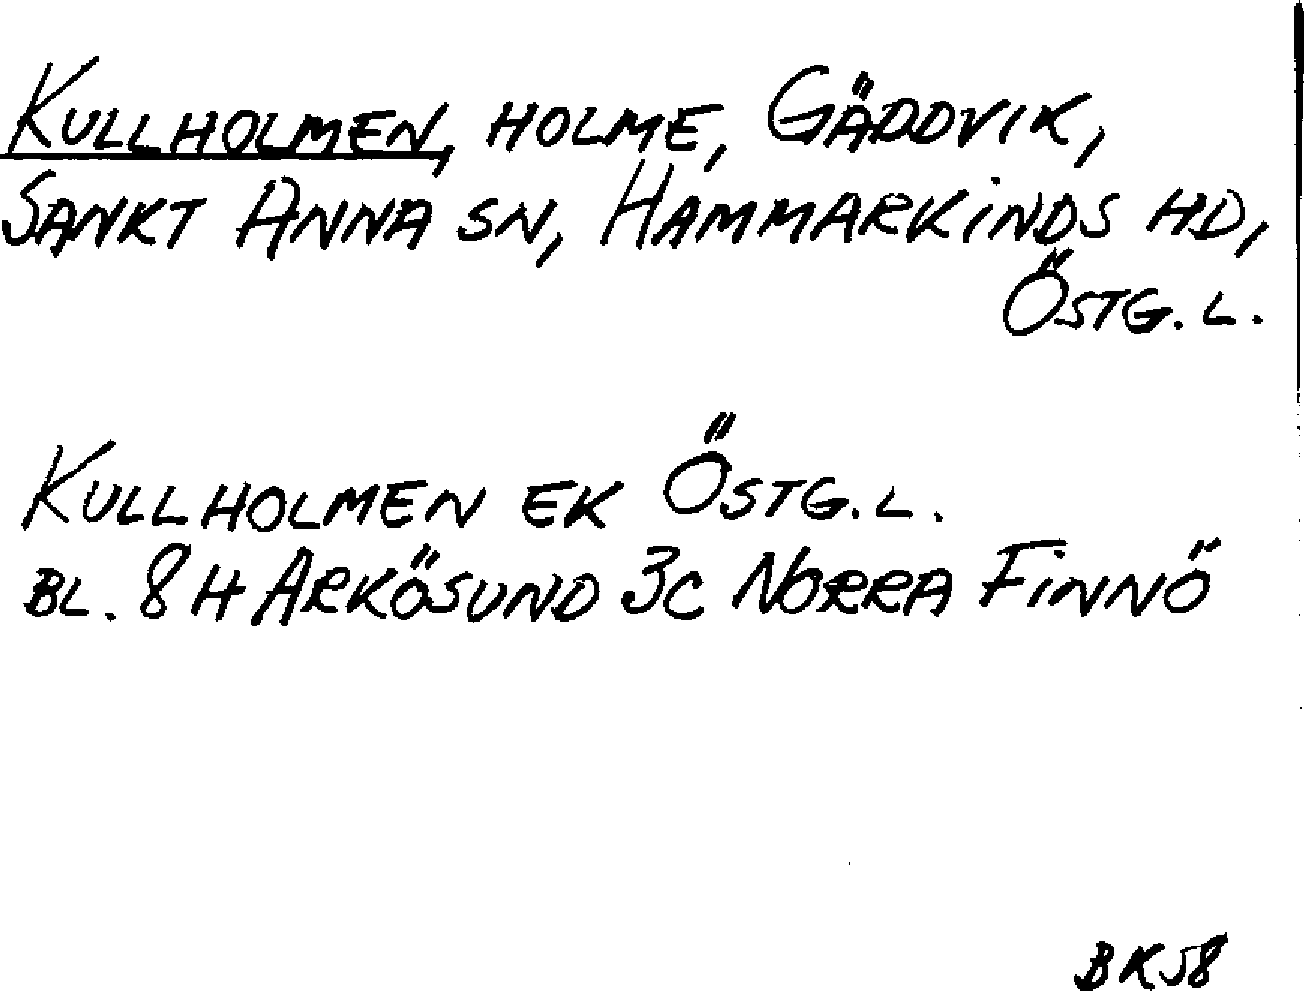 KULLHOLMEN, HOLME, GÄDDVIK,
SANKT ANNA SN, HAMMARKINDS HD,
ÖSTG. L.
KULLHOLMEN EK ÖSTG. L.
BL. 8H ARKÖSUND 3C NORRA FINNÖ
BK58